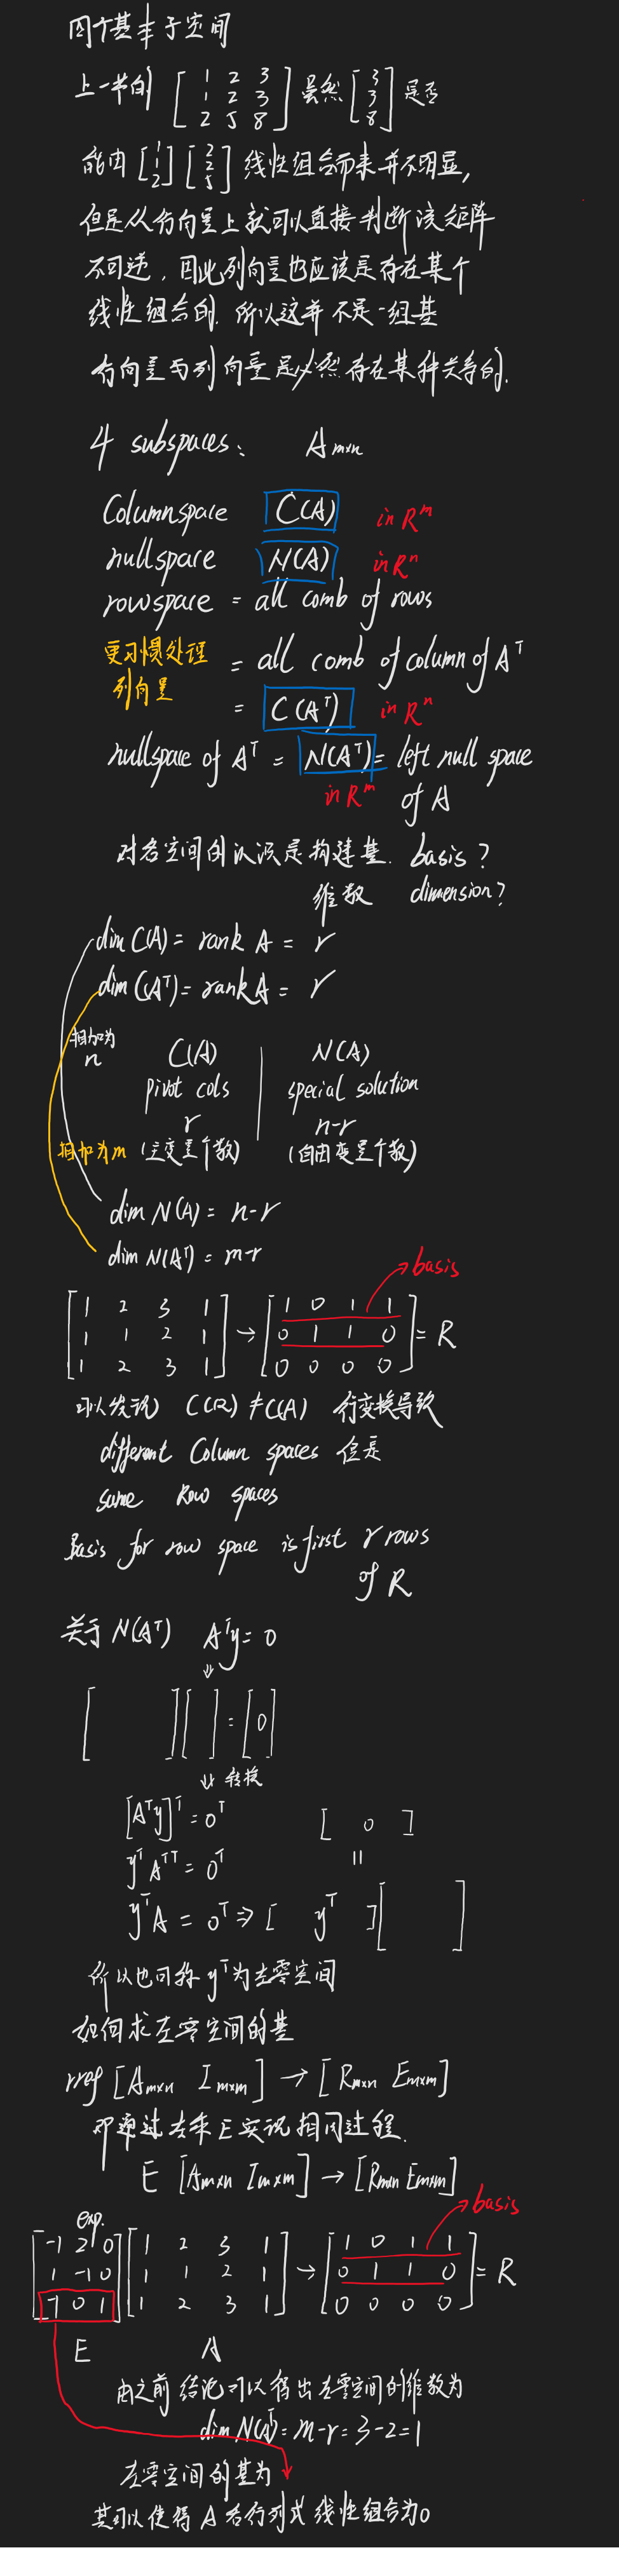 四个基本子空间
上一节的 [1 2 3; 1 2 3; 2 5 8] 虽然 [3; 3; 8] 是否
能由 [1; 1; 2] [2; 2; 5] 线性组合而来并不明显,
但是从行向量上就可以直接判断该矩阵
不可逆, 因此列向量也应该是存在某个
线性组合的. 所以这并不是一组基
行向量与列向量是必然存在某种关系的.
4 subspaces: A m×n
Columnspace C(A) in R^m
nullspace N(A) in R^n
rowspace = all comb of rows
更习惯处理 = all comb of column of A^T
列向量 = C(A^T) in R^n
nullspace of A^T = N(A^T) = left null space
in R^m of A
对各空间的认识是构建基. basis?
维数 dimension?
dim C(A) = rank A = r
dim C(A^T) = rank A = r
相加为
n C(A) | N(A)
pivot cols | special solution
r | n-r
相加为m (主变量个数) | (自由变量个数)
dim N(A) = n-r
dim N(A^T) = m-r
basis
[1 2 3 1; 1 1 2 1; 1 2 3 1] → [1 0 1 1; 0 1 1 0; 0 0 0 0] = R
可以发现 C(R) ≠ C(A) 行变换导致
different Column spaces 但是
same Row spaces
Basis for row space is first r rows
of R
关于 N(A^T) A^T y = 0
⇓
[ ] [ ] = [0]
⇓ 转换
[A^T y]^T = 0^T [ 0 ]
y^T A^TT = 0^T =
y^T A = 0^T ⇒ [ y^T ] [ ]
所以也可称 y^T 为左零空间
如何求左零空间的基
rref [A m×n I m×m] → [R m×n E m×m]
即通过左乘E实现相同过程.
E [A m×n I m×m] → [R m×n E m×m]
exp. basis
[-1 2 0; 1 -1 0; -1 0 1] [1 2 3 1; 1 1 2 1; 1 2 3 1] → [1 0 1 1; 0 1 1 0; 0 0 0 0] = R
E A
由之前结论可以得出左零空间的维数为
dim N(A^T) = m-r = 3-2 = 1
左零空间的基为
其可以使得 A 各行列式线性组合为0